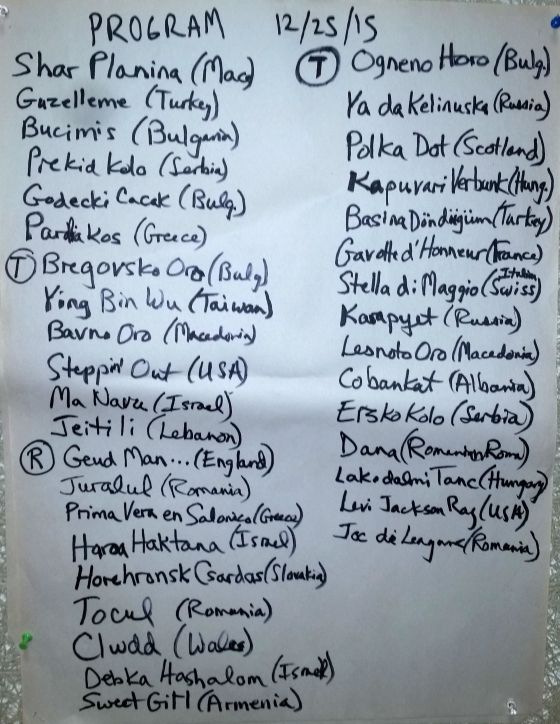 PROGRAM 12/25/15
Shar Planina (Mac)
Guzelleme (Turkey)
Bucimis (Bulgaria)
Prekid Kolo (Serbia)
Godecki Cacak (Bulg.)
Kos (Greece)
(T) Bregovsko Oro (Bulg)
Ying Bin Wu (Taiwan)
Bavno Oro (Macedonia)
Steppin' Out (USA)
Ma Navu (Israel)
Jeitili (Lebanon)
(R) Geud Man... (England)
Juralul (Romania)
Prima Vera en Salonico (Greece)
Haktana (Israel)
Horehronsk Csardas (Slovakia)
Tocul (Romania)
Clwdd (Wales)
Debka Hashalom (Israel)
Sweet Girl (Armenia)
(T) Ogneno Horo (Bulg.)
Ya da Kelinuska (Russia)
Polka Dot (Scotland)
Kapuvari Verbunk (Hung.)
Basina Döndügüm (Turkey)
Gavotte d'Honneur (France)
Stella di Maggio (Italian Swiss)
Karapyet (Russia)
Lesnoto Oro (Macedonia)
Cobankat (Albania)
Ersko Kolo (Serbia)
Dana (Romanian Roma)
Lakodalmi Tanc (Hungary)
Levi Jackson Rag (USA)
Joc de Leagane (Romania)